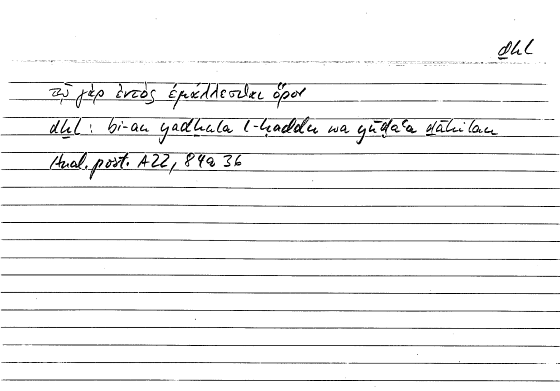 dẖl
τῷ γὰρ ἐντὸς ἐμβάλλεσθαι ὅρον
dẖl : bi-an yadẖula l-ḥaddu wa yūḍaʿa dāẖilan
Anal. post. A22, 84a 36